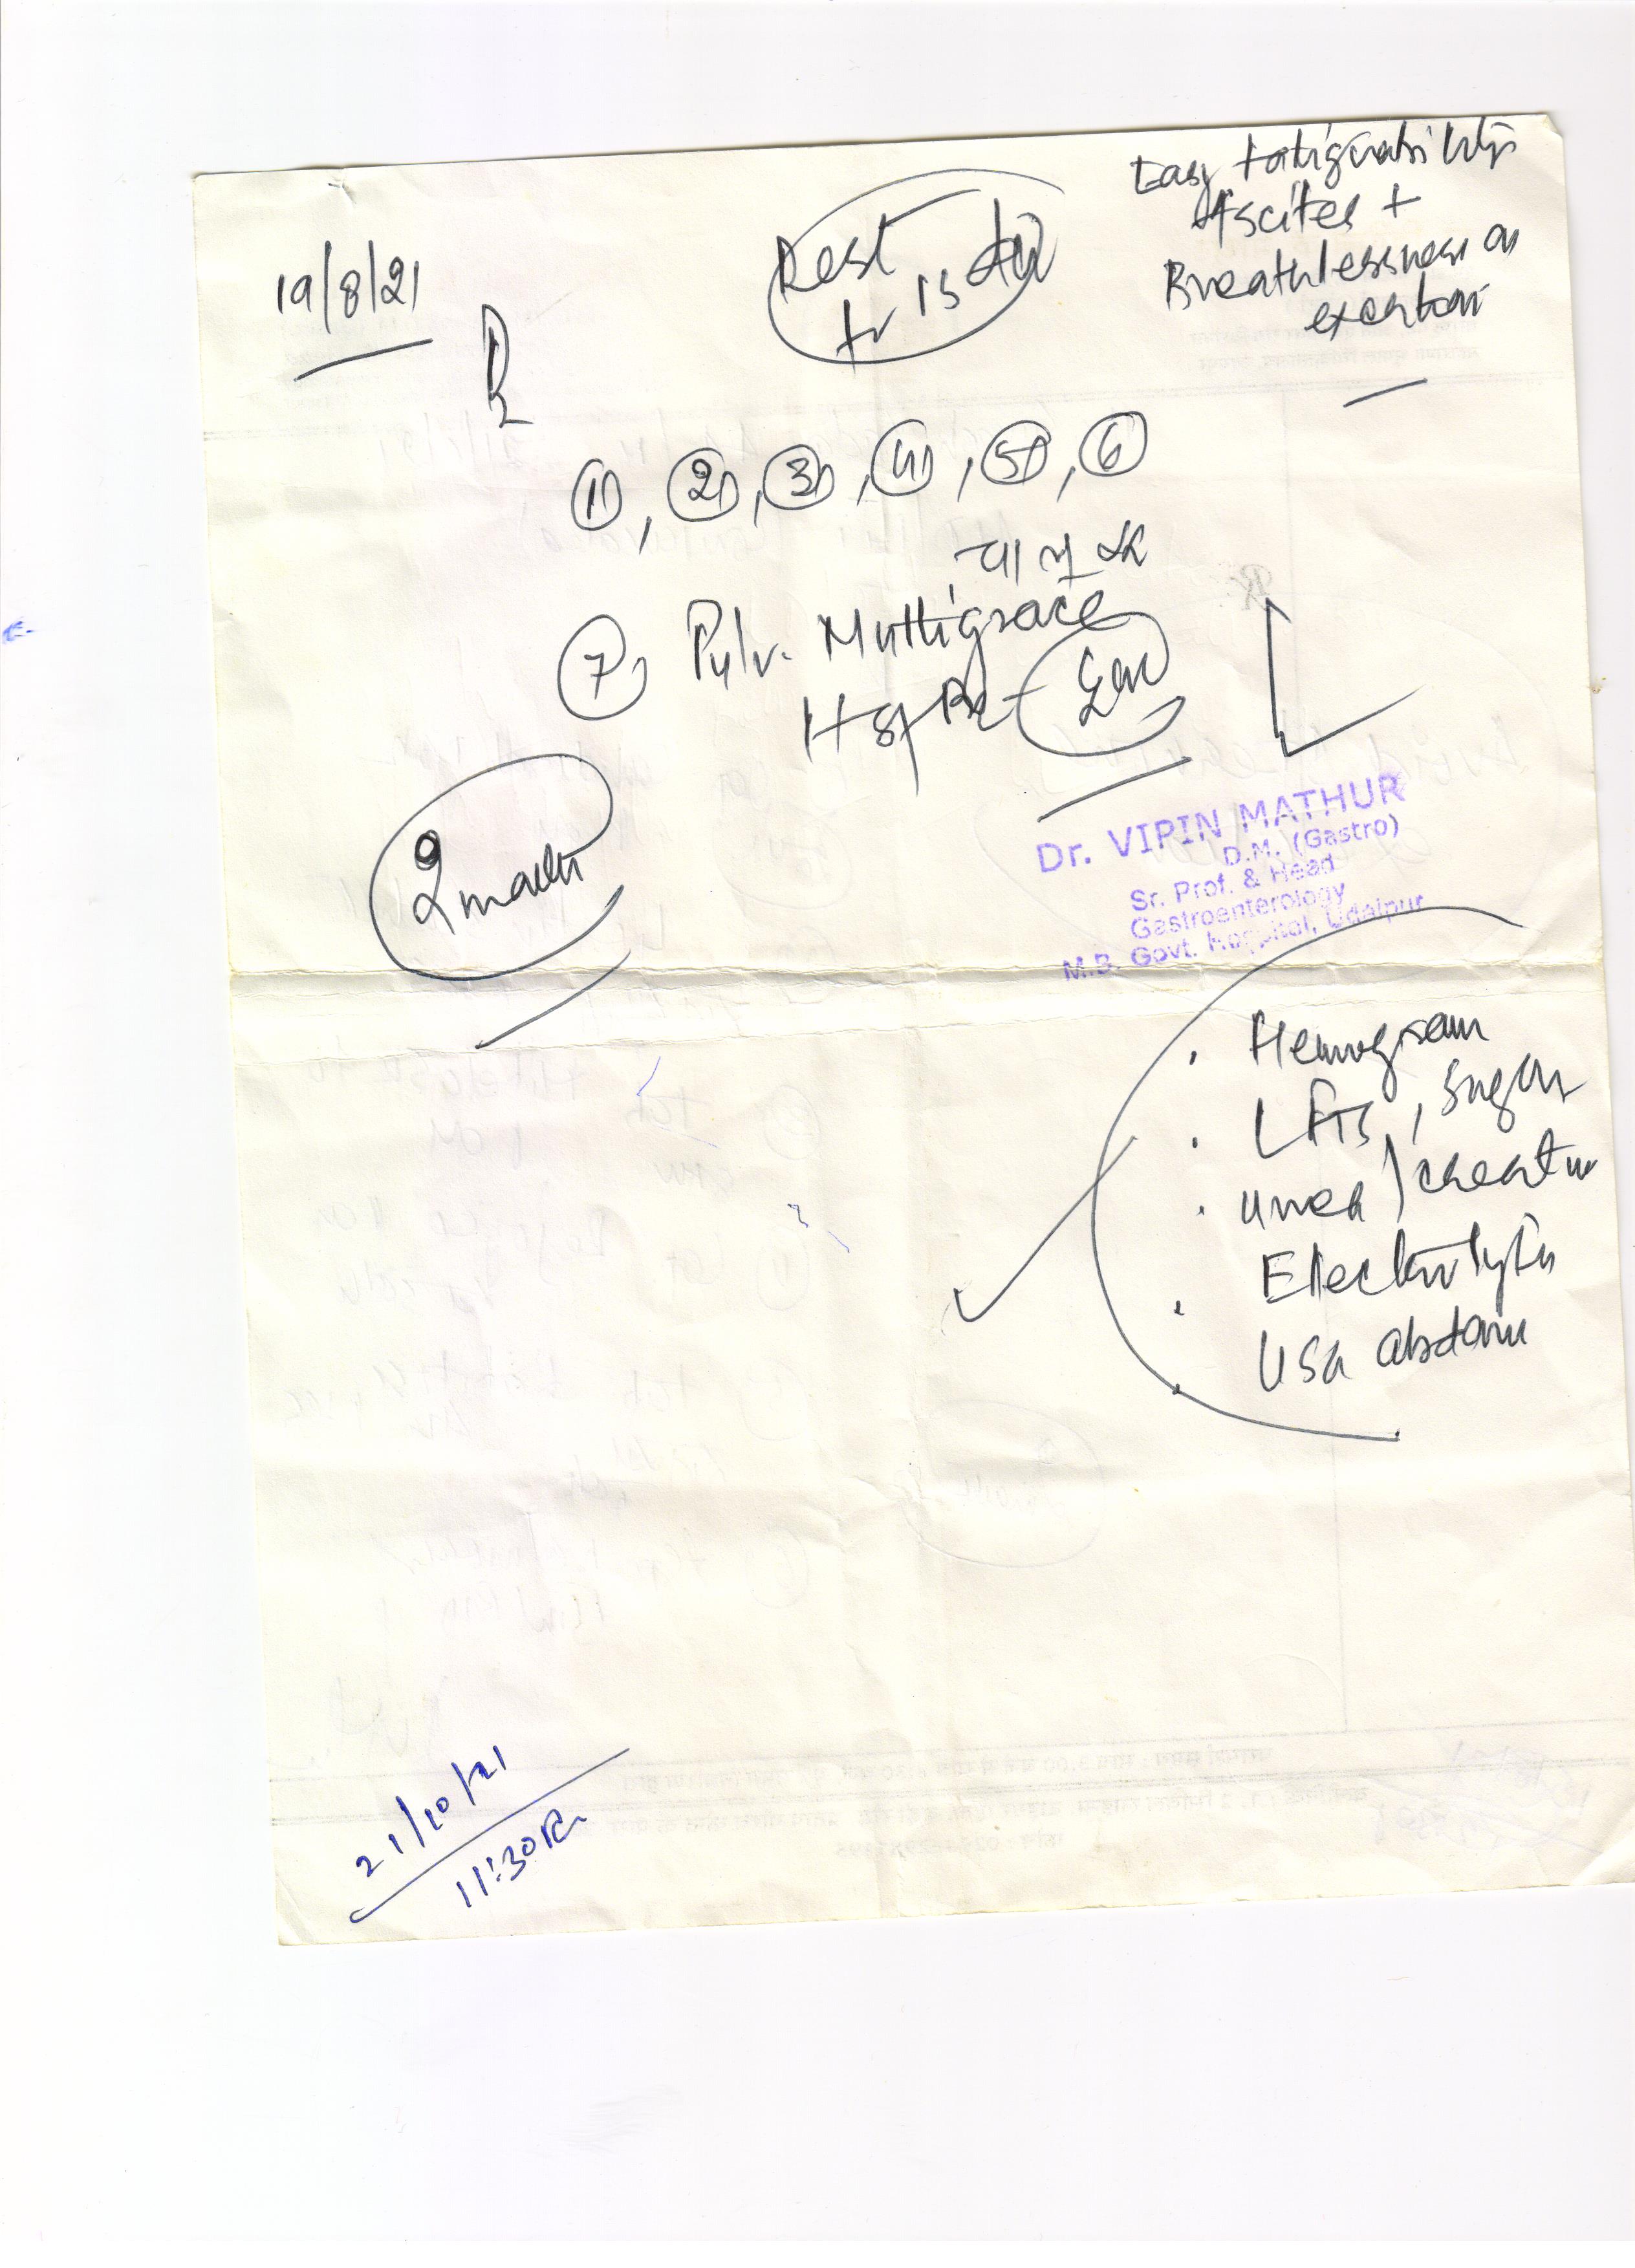 Easy fatiguability
Ascites +
Breathlessness on
exertion
19/8/21
Rest
for 15 days
Rx
①, ②, ③, ④, ⑤, ⑥
चालू रखें
⑦ Pulv. Multigrace
2 month
Dr. VIPIN MATHUR
D.M. (Gastro)
Sr. Prof. & Head
Gastroenterology
M.B. Govt. Hospital, Udaipur
. Hemogram
. LFTs, Sugar
. Urea / Creatin
. Electrolytes
. USG abdomen
21/10/21
11:30